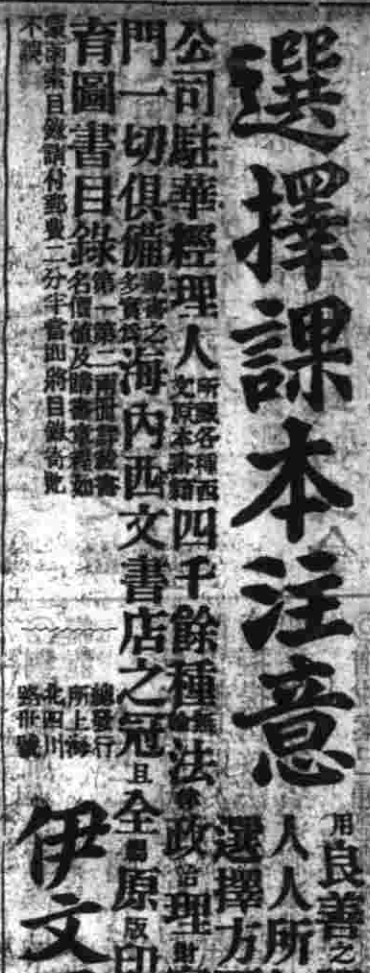 選擇課本注意
用良善之
人人所
選擇方
公司駐華經理人所藏各種西文原本書籍四千餘種無法律政治理財
門一切俱備藏書之多實為海內西文書店之冠且全屬原版印
育圖書目錄第一第二兩冊詳載書名價值及購書章程如
蒙函索目錄請付郵費二分半當即將目錄寄
不誤
總發行
所上海
北四川
路號
伊文